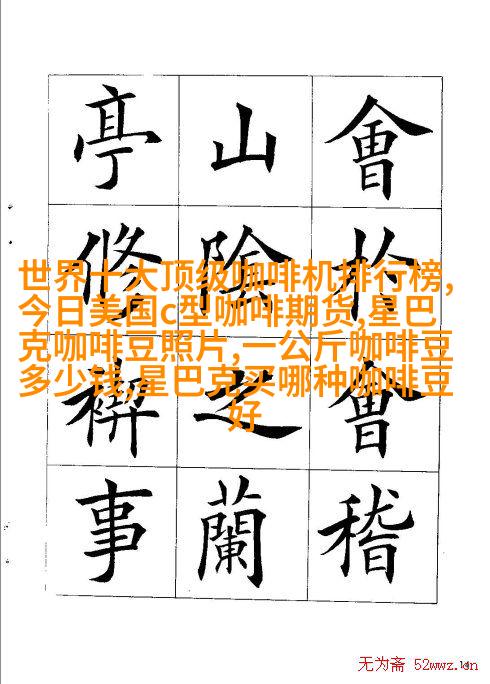 會扵會稽
山陰之蘭
亭修禊事
世界十大顶级咖啡机排行榜,
今日美国c型咖啡期货,星巴
克咖啡豆照片,一公斤咖啡豆
多少钱,星巴克买哪种咖啡豆
好
无为斋 52wwz.cn